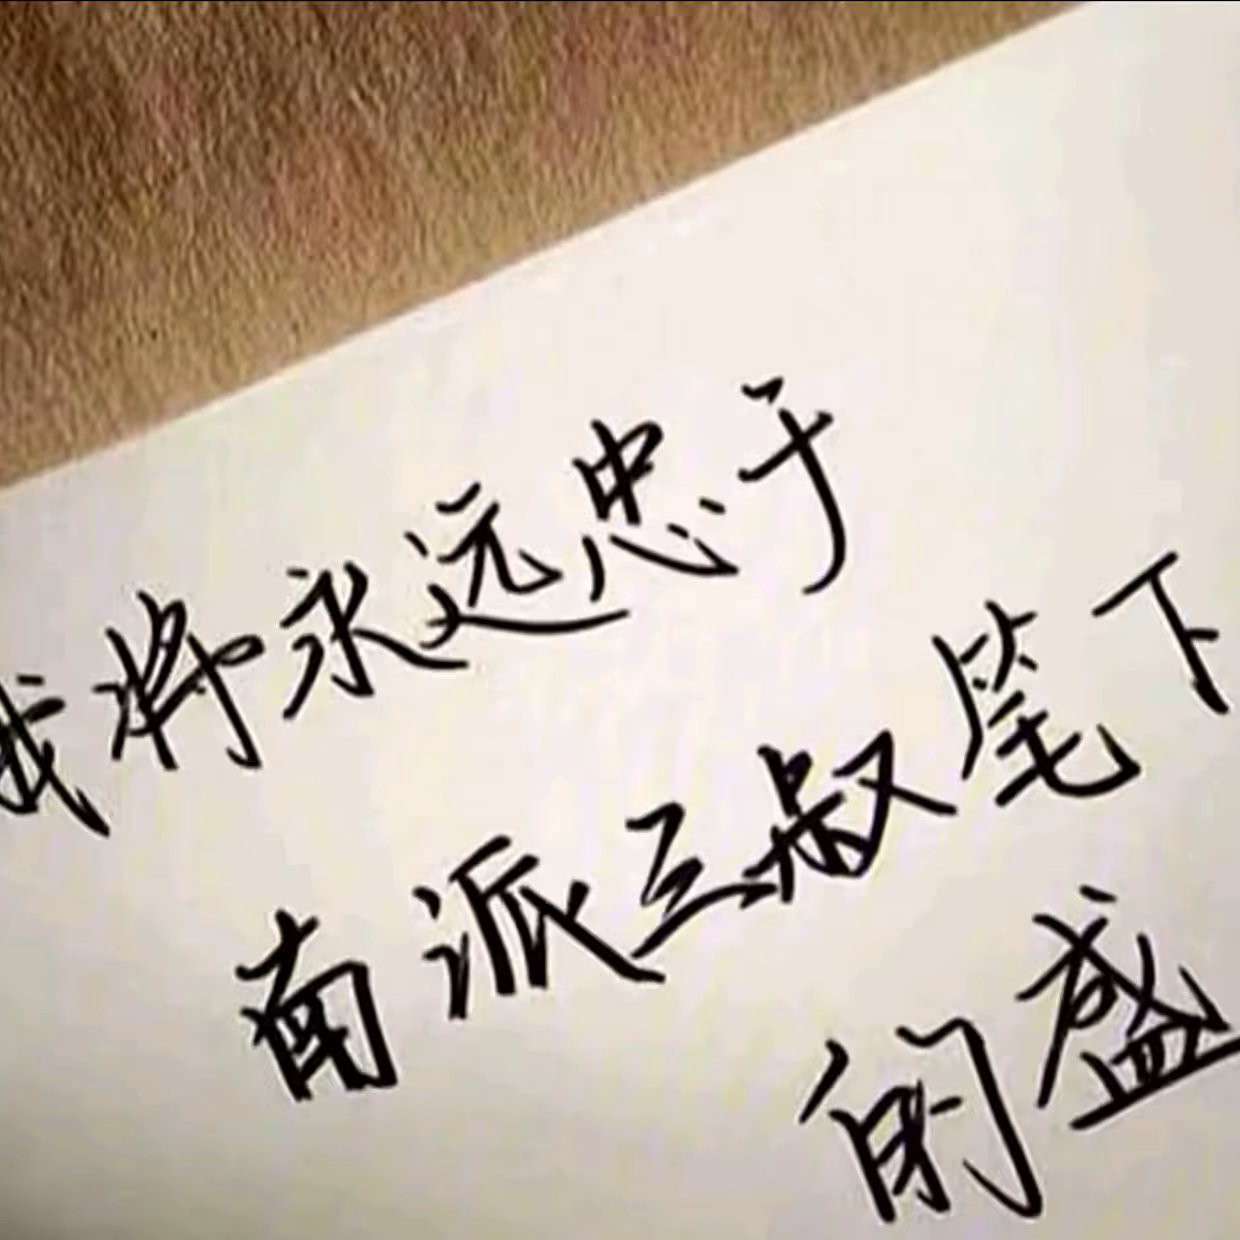 我将永远忠于
南派三叔笔下
的盛